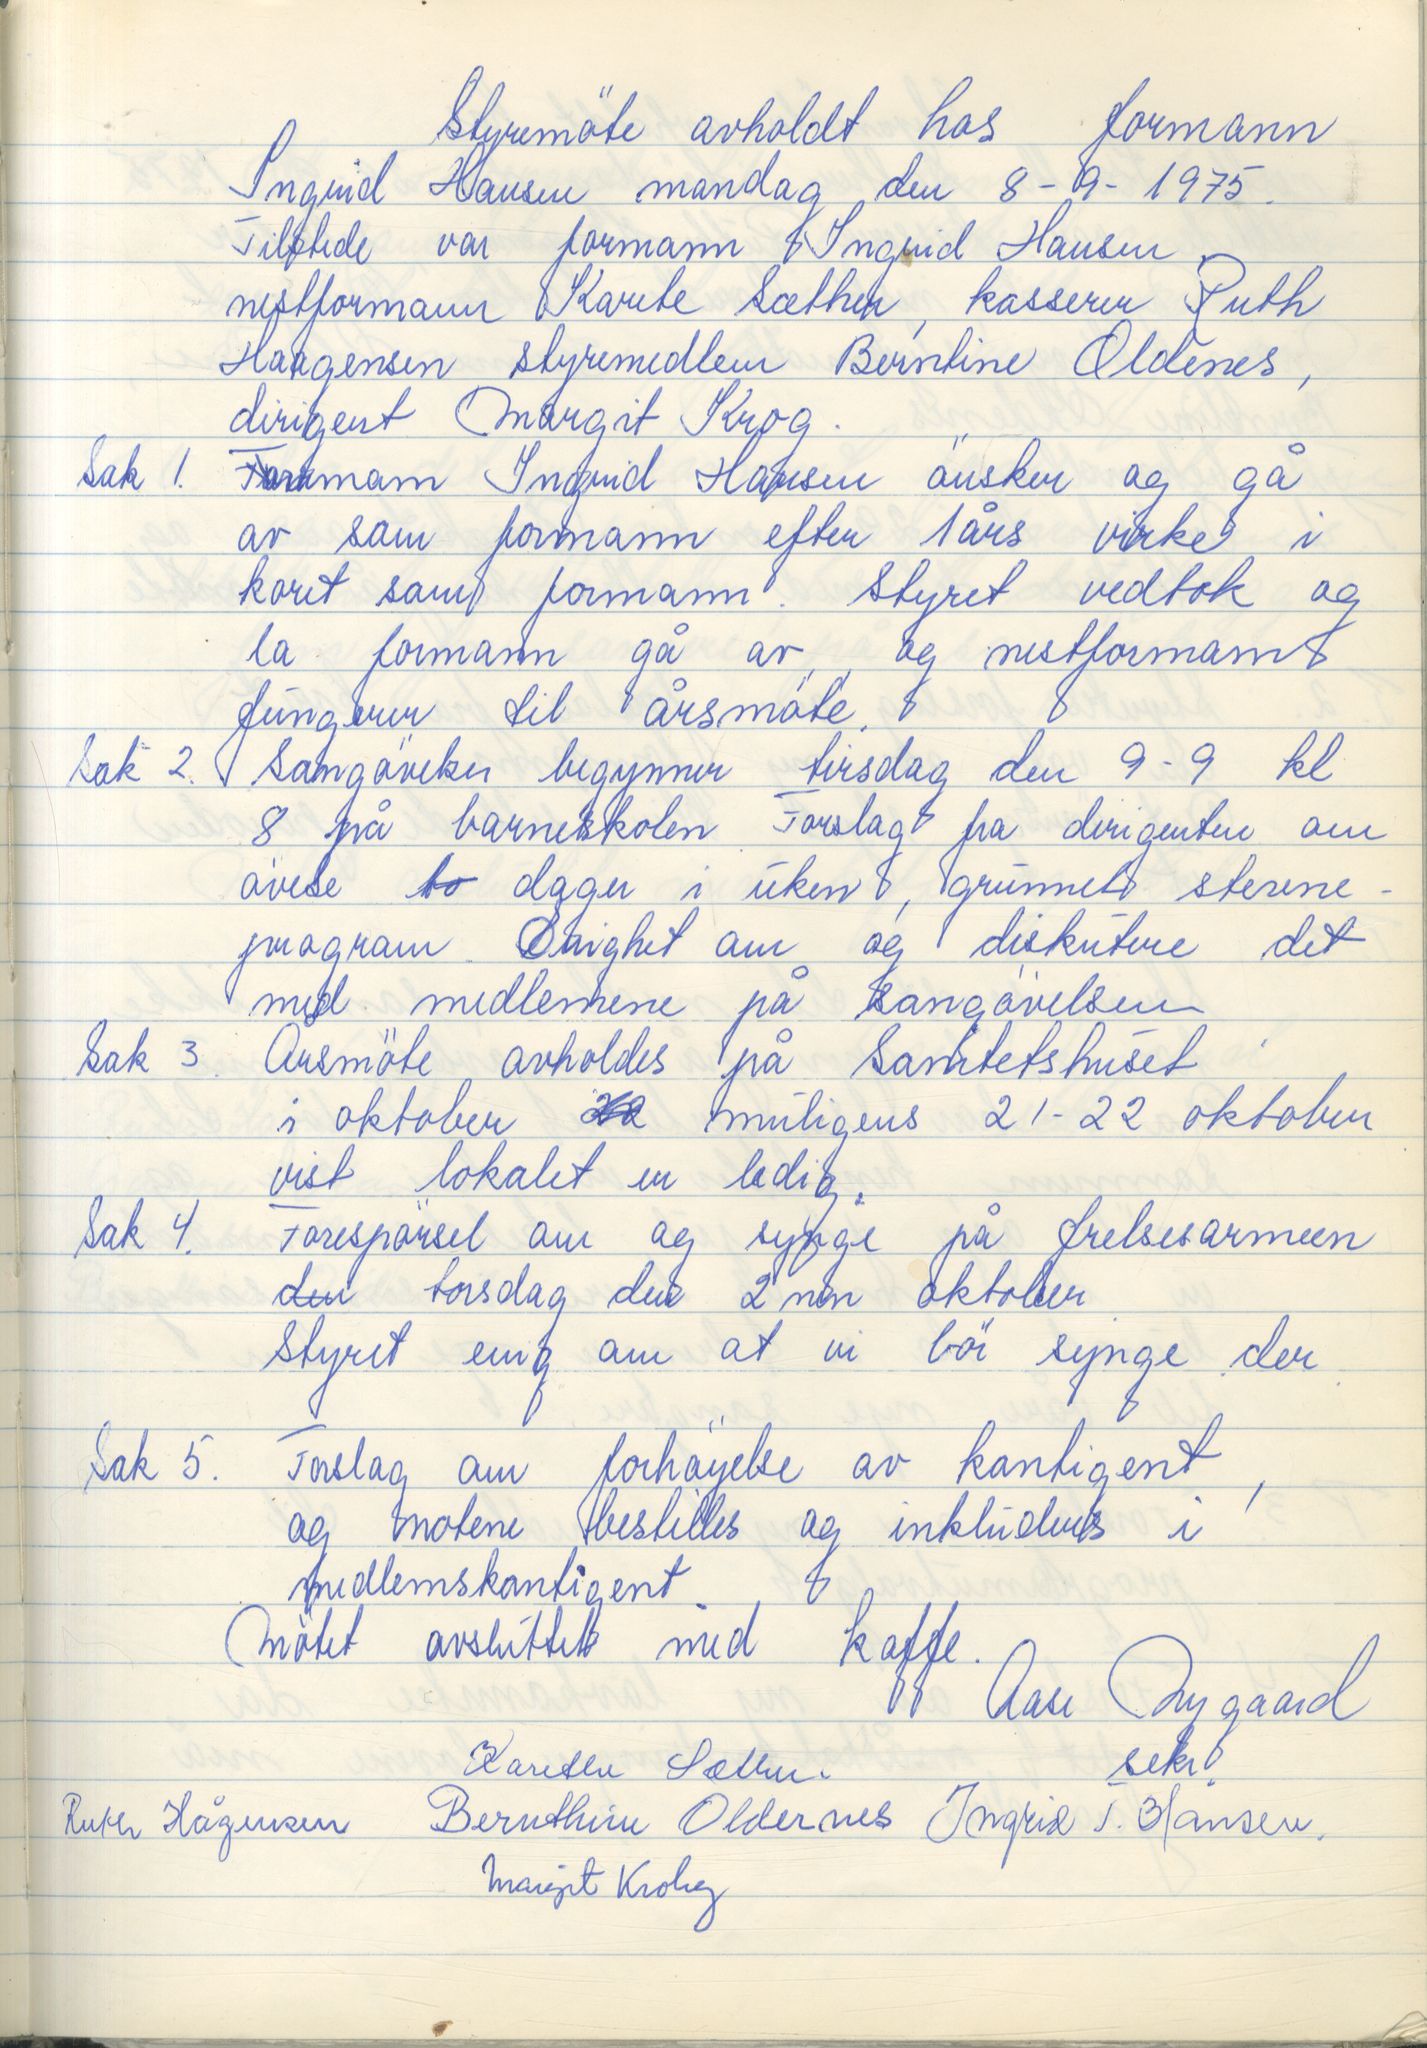 Styremöte avholdt hos formann
Ingrid Hansen mandag den 8-9-1975.
Tilstede var formann Ingrid Hansen,
nestformann Karete Sæther, kasserer Ruth
Haagensen styremedlem Berntine Oldenes,
dirigent Margit Krog.
Sak 1. Formann Ingrid Hansen önsker og gå
av som formann efter 1 års virke i
koret som formann. Styret vedtok og
la formann gå av, og nestformann
fungerer til årsmöte.
Sak 2. Sangöveken begynner tirsdag den 9-9 kl
8 på barneskolen. Forslag fra dirigenten om
övelse to dager i uken, grunnet stevne-
program. Enighet om og diskutere det
med medlemene på sangövelsen
Sak 3. Årsmöte avholdes på Sanitetshuset
i oktober muligens 21-22 oktober
vist lokalet er ledig.
Sak 4. Forespörsel om og synge på frelsesarmeen
den torsdag den 2 nen oktober
Styret enig om at vi bör synge der.
Sak 5. Forslag om forhöyelse av kontigent,
og notene bestilles og inkluderes i
medlemskontigent.
Mötet avsluttet med kaffe.
Aase Nygaard
Karethe Sæther. sekr.
Ruth Hågensen Bernthine Oldernes Ingrid T. Hansen.
Margit Krohg